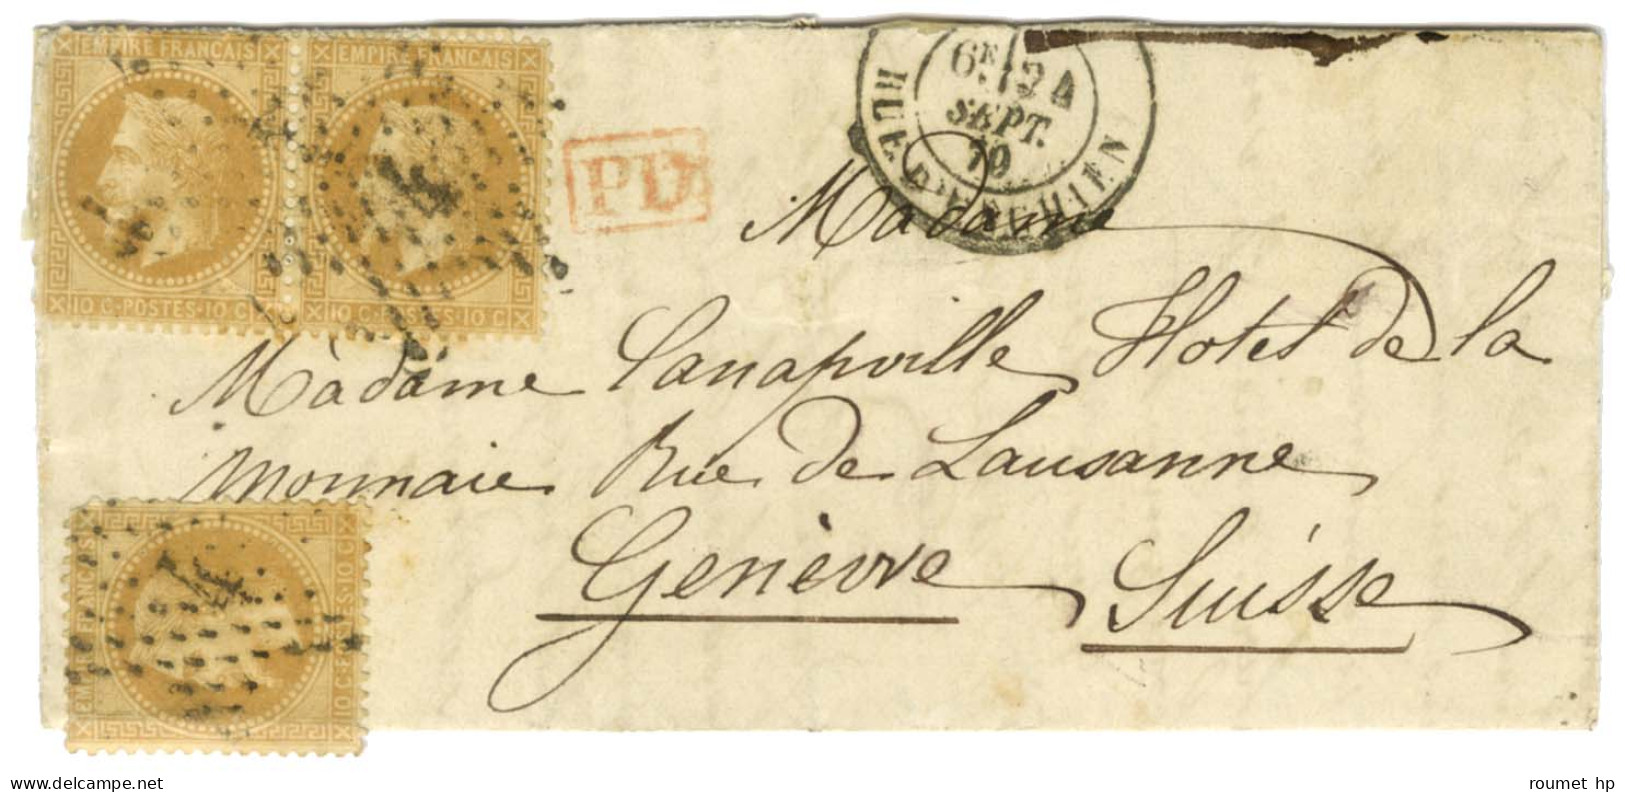 EMPIRE FRANÇAIS
10 C. POSTES 10 C
EMPIRE FRANÇAIS
10 C. POSTES 10 C
4
PD
6E
24
SEPT.
70
RUE D'ENGHIEN
Madame
Màdame Canapville Hotel de la
Monnaie Rue de Lausanne
Genève Suisse
EMPIRE FRANÇAIS
10 C. POSTES 10 C
4
www.delcampe.net
roumet hp